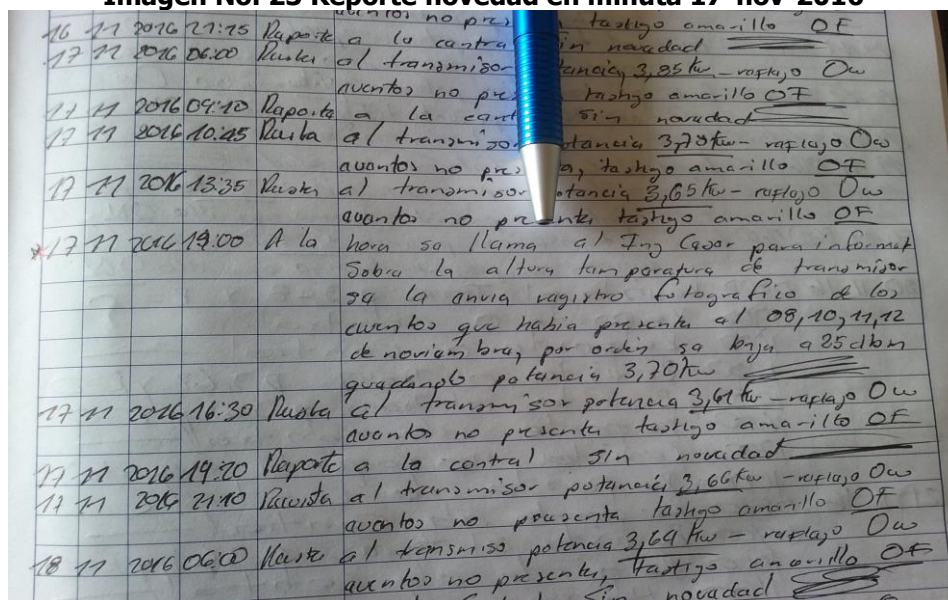 Imagen No. 23 Reporte novedad en minuta 17-nov-2016
eventos no pres testigo amarillo OF
16 11 2016 21:15 Reporte a la central sin novedad
17 11 2016 06:00 Revista al transmisor potencia 3,85 kw - reflejo 0w
eventos no pre testigo amarillo OF
17 11 2016 09:10 Reporte a la cent sin novedad
17 11 2016 10:45 Revista al transmisor potencia kw - reflejo 0w
eventos no pres a, testigo amarillo OF
17 11 2016 13:35 Revista al transmisor potencia 3,65 kw - reflejo 0w
eventos no presenta testigo amarillo OF
17 11 2016 14:00 A la hora se llama al Ing Cesar para informar
Sobre la altura temperatura de transmisor
se la envia registro fotografico de los
eventos que habia presenta al 08,10,11,12
de noviembre, por orden se baja a 25 dbm
quedando potencia 3,70 kw
17 11 2016 16:30 Revista al transmisor potencia 3,61 kw - reflejo 0w
eventos no presenta testigo amarillo OF
17 11 2016 19:20 Reporte a la central sin novedad
17 11 2016 21:10 Revista al transmisor potencia 3,66 kw - reflejo 0w
eventos no presenta testigo amarillo OF
18 11 2016 06:00 Revista al transmiso potencia 3,64 kw - reflejo 0w
eventos no presenta, testigo amarillo OF
sin novedad